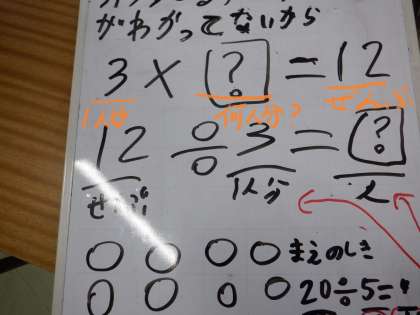 がわかってないから
3 × ? = 12
1人分 何人分?
12 ÷ 3 = ?
ぜんぶ 1人分 人
○ ○ ○ ○ まえのしき
○ ○ ○ ○ 20÷5=4